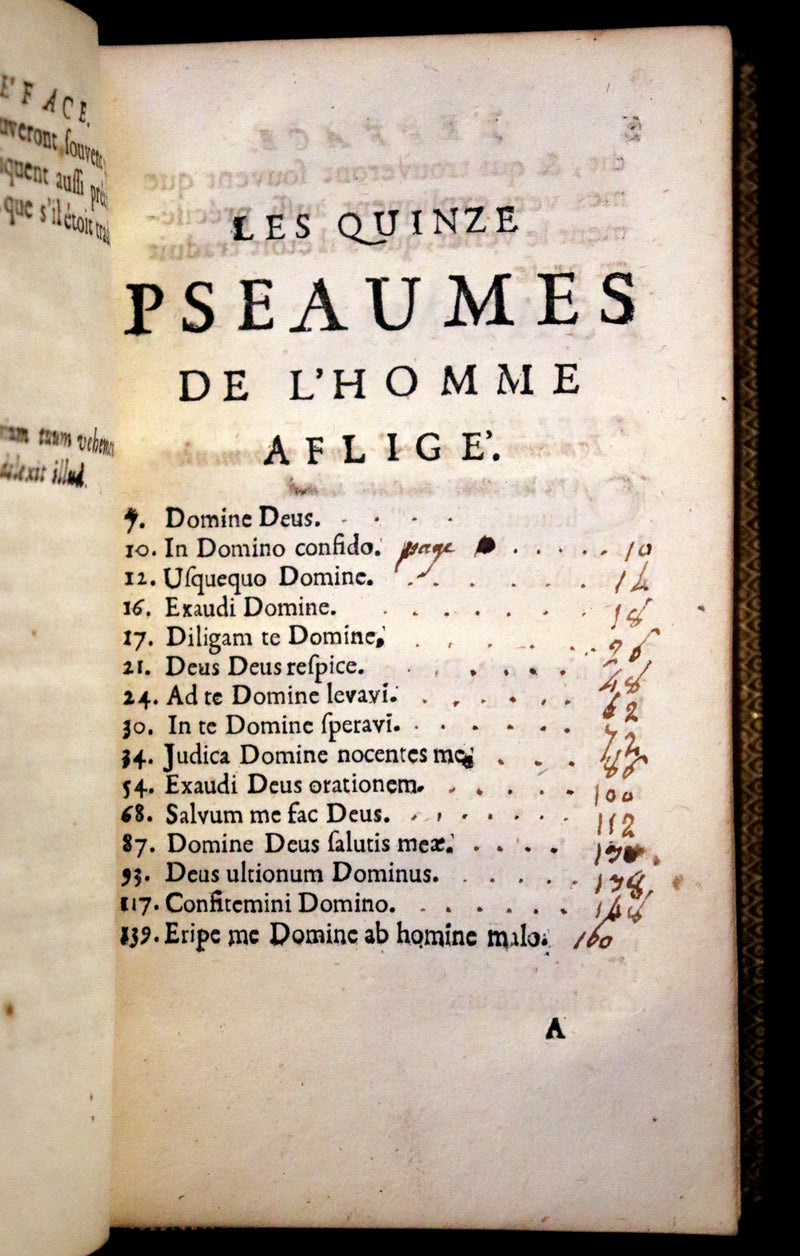 FACE.
veront souvent
quent aussi
que s'il étoit
LES QUINZE
PSEAUMES
DE L'HOMME
AFLIGE'.
7. Domine Deus. . . . .
10. In Domino confido. page . . . . . 10
12. Uſquequo Domine. . . . . . .
16. Exaudi Domine. . . . . . . .
17. Diligam te Domine, . . . . .
21. Deus Deus reſpice. . . . . .
24. Ad te Domine levavi. . . . . . .
30. In te Domine ſperavi. . . . . . .
34. Judica Domine nocentes me, . . .
54. Exaudi Deus orationem. . . . . . 100
68. Salvum me fac Deus. . . . . . . 112
87. Domine Deus ſalutis meæ. . . . .
93. Deus ultionum Dominus. . . . . .
117. Confitemini Domino. . . . . . .
139. Eripe me Domine ab homine malo. 160
A